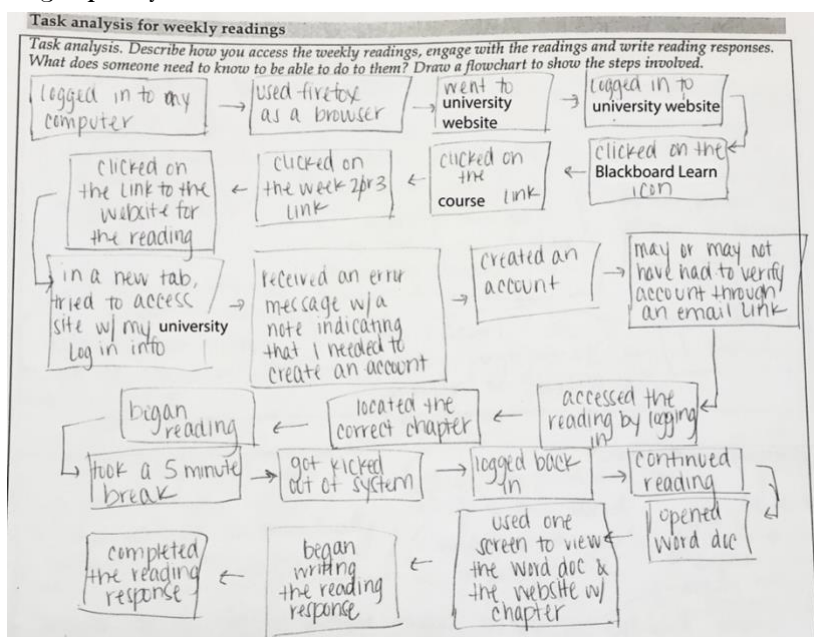 Task analysis for weekly readings
Task analysis. Describe how you access the weekly readings, engage with the readings and write reading responses.
What does someone need to know to be able to do to them? Draw a flowchart to show the steps involved.
logged in to my
computer
used firefox
as a browser
went to
university
website
logged in to
university website
clicked on the
Blackboard Learn
icon
clicked on
the
course link
clicked on
the week 2 or 3
link
clicked on
the link to the
website for
the reading
in a new tab,
tried to access
site w/ my university
log in info
received an error
message w/ a
note indicating
that I needed to
create an account
created an
account
may or may not
have had to verify
account through
an email link
accessed the
reading by logging
in
located the
correct chapter
began
reading
took a 5 minute
break
got kicked
out of system
logged back
in
continued
reading
opened
word doc
used one
screen to view
the word doc &
the website w/
chapter
began
writing
the reading
response
completed
the reading
response